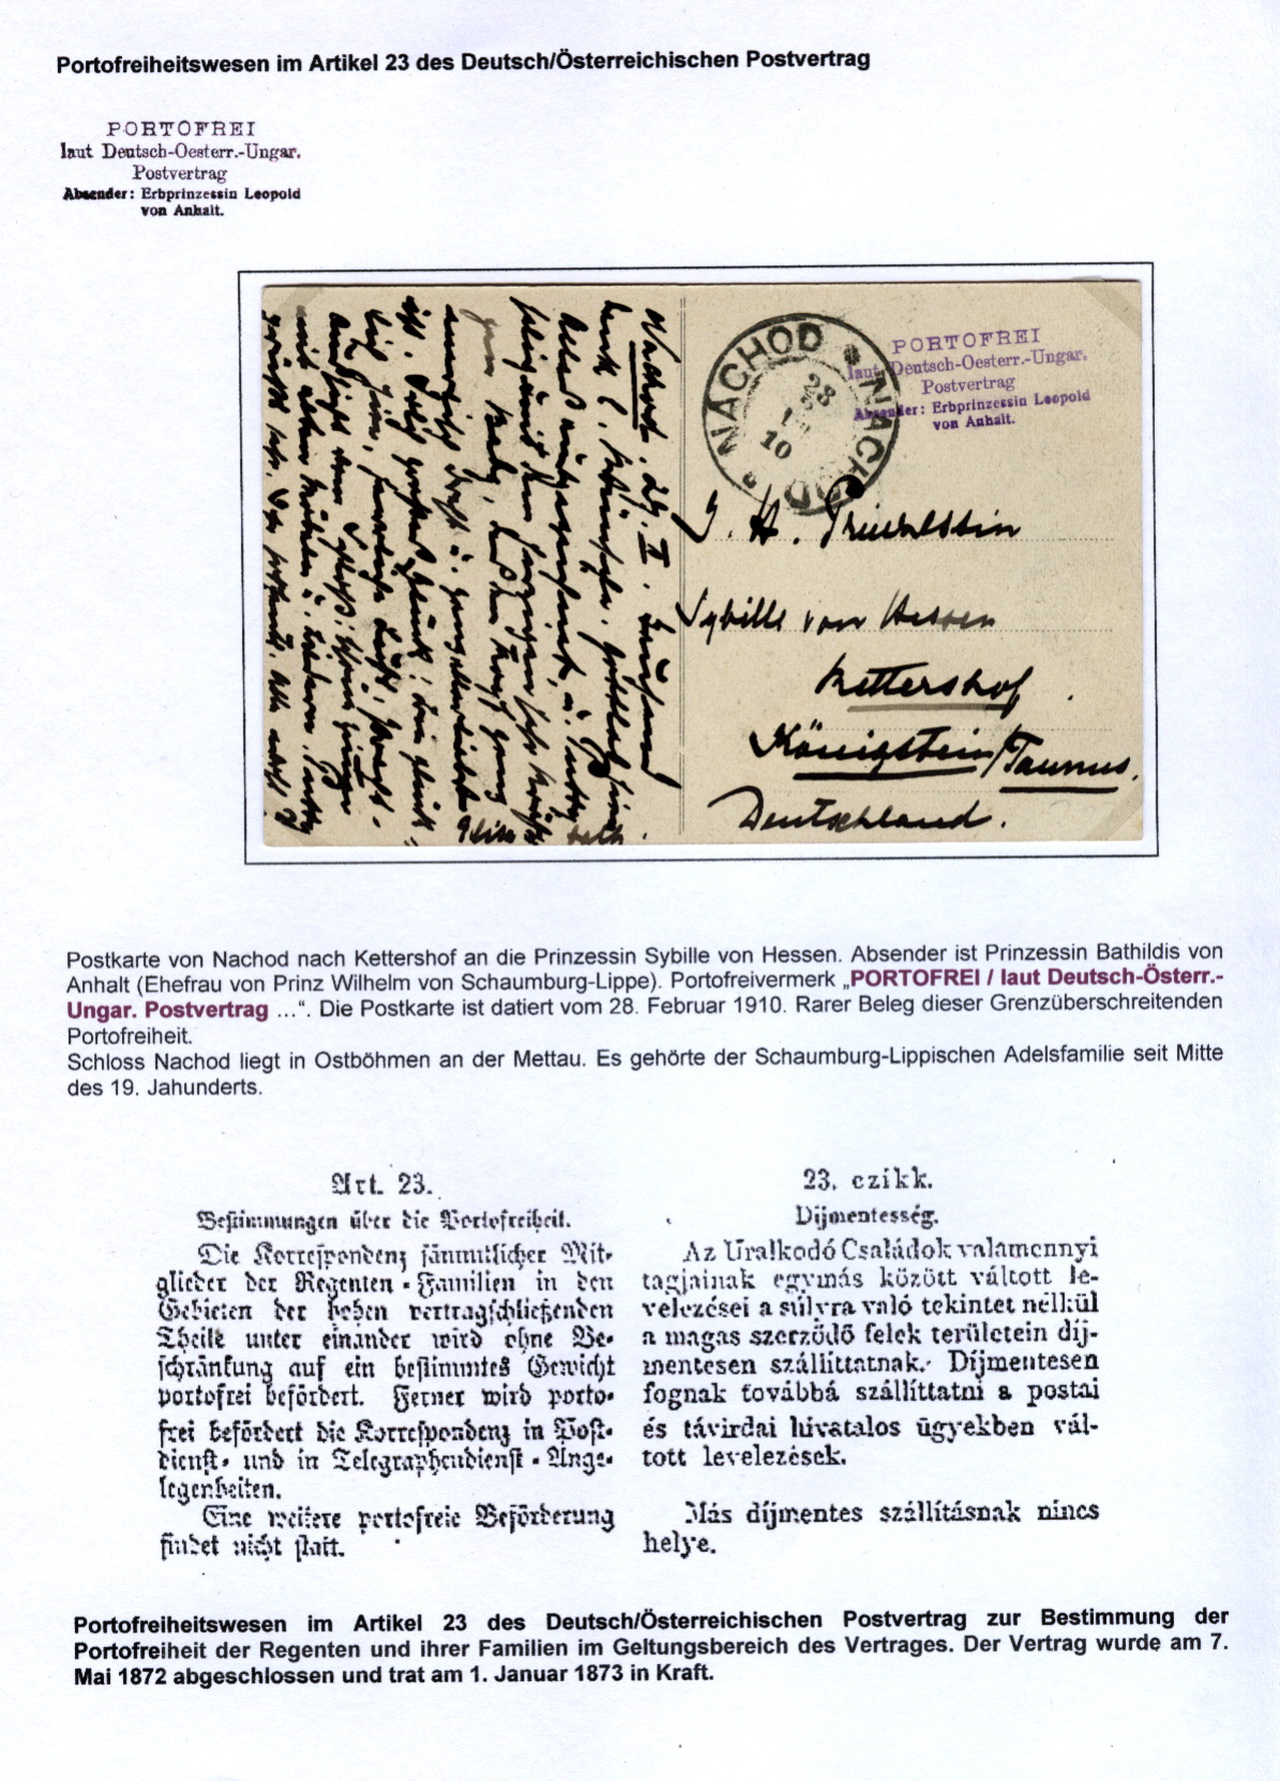 Portofreiheitswesen im Artikel 23 des Deutsch/Österreichischen Postvertrag
PORTOFREI
laut Deutsch-Oesterr.-Ungar.
Postvertrag
Absender: Erbprinzessin Leopold
von Anhalt.
NACHOD * NACHOD *
28
10
PORTOFREI
laut Deutsch-Oesterr.-Ungar.
Postvertrag
Absender: Erbprinzessin Leopold
von Anhalt.
Nachod. 27. II.
I. H. Prinzessin
Sybille von Hessen
Kettershof
Königstein/Taunus.
Deutschland.
Postkarte von Nachod nach Kettershof an die Prinzessin Sybille von Hessen. Absender ist Prinzessin Bathildis von
Anhalt (Ehefrau von Prinz Wilhelm von Schaumburg-Lippe). Portofreivermerk „PORTOFREI / laut Deutsch-Österr.-
Ungar. Postvertrag ...“. Die Postkarte ist datiert vom 28. Februar 1910. Rarer Beleg dieser Grenzüberschreitenden
Portofreiheit.
Schloss Nachod liegt in Ostböhmen an der Mettau. Es gehörte der Schaumburg-Lippischen Adelsfamilie seit Mitte
des 19. Jahunderts.
Art. 23.
Bestimmungen über die Portofreiheit.
Die Korrespondenz sämmtlicher Mit-
glieder der Regenten-Familien in den
Gebieten der hohen vertragschließenden
Theile unter einander wird ohne Be-
schränkung auf ein bestimmtes Gewicht
portofrei befördert. Ferner wird porto-
frei befördert die Korrespondenz in Post-
dienst- und in Telegraphendienst-Ange-
legenheiten.
Eine weitere portofreie Beförderung
findet nicht statt.
23. czikk.
Díjmentesség.
Az Uralkodó Családok valamennyi
tagjainak egymás között váltott le-
velezései a súlyra való tekintet nélkül
a magas szerződő felek területein díj-
mentesen szállíttatnak. Díjmentesen
fognak továbbá szállíttatni a postai
és távirdai hivatalos ügyekben vál-
tott levelezések.
Más díjmentes szállításnak nincs
helye.
Portofreiheitswesen im Artikel 23 des Deutsch/Österreichischen Postvertrag zur Bestimmung der
Portofreiheit der Regenten und ihrer Familien im Geltungsbereich des Vertrages. Der Vertrag wurde am 7.
Mai 1872 abgeschlossen und trat am 1. Januar 1873 in Kraft.